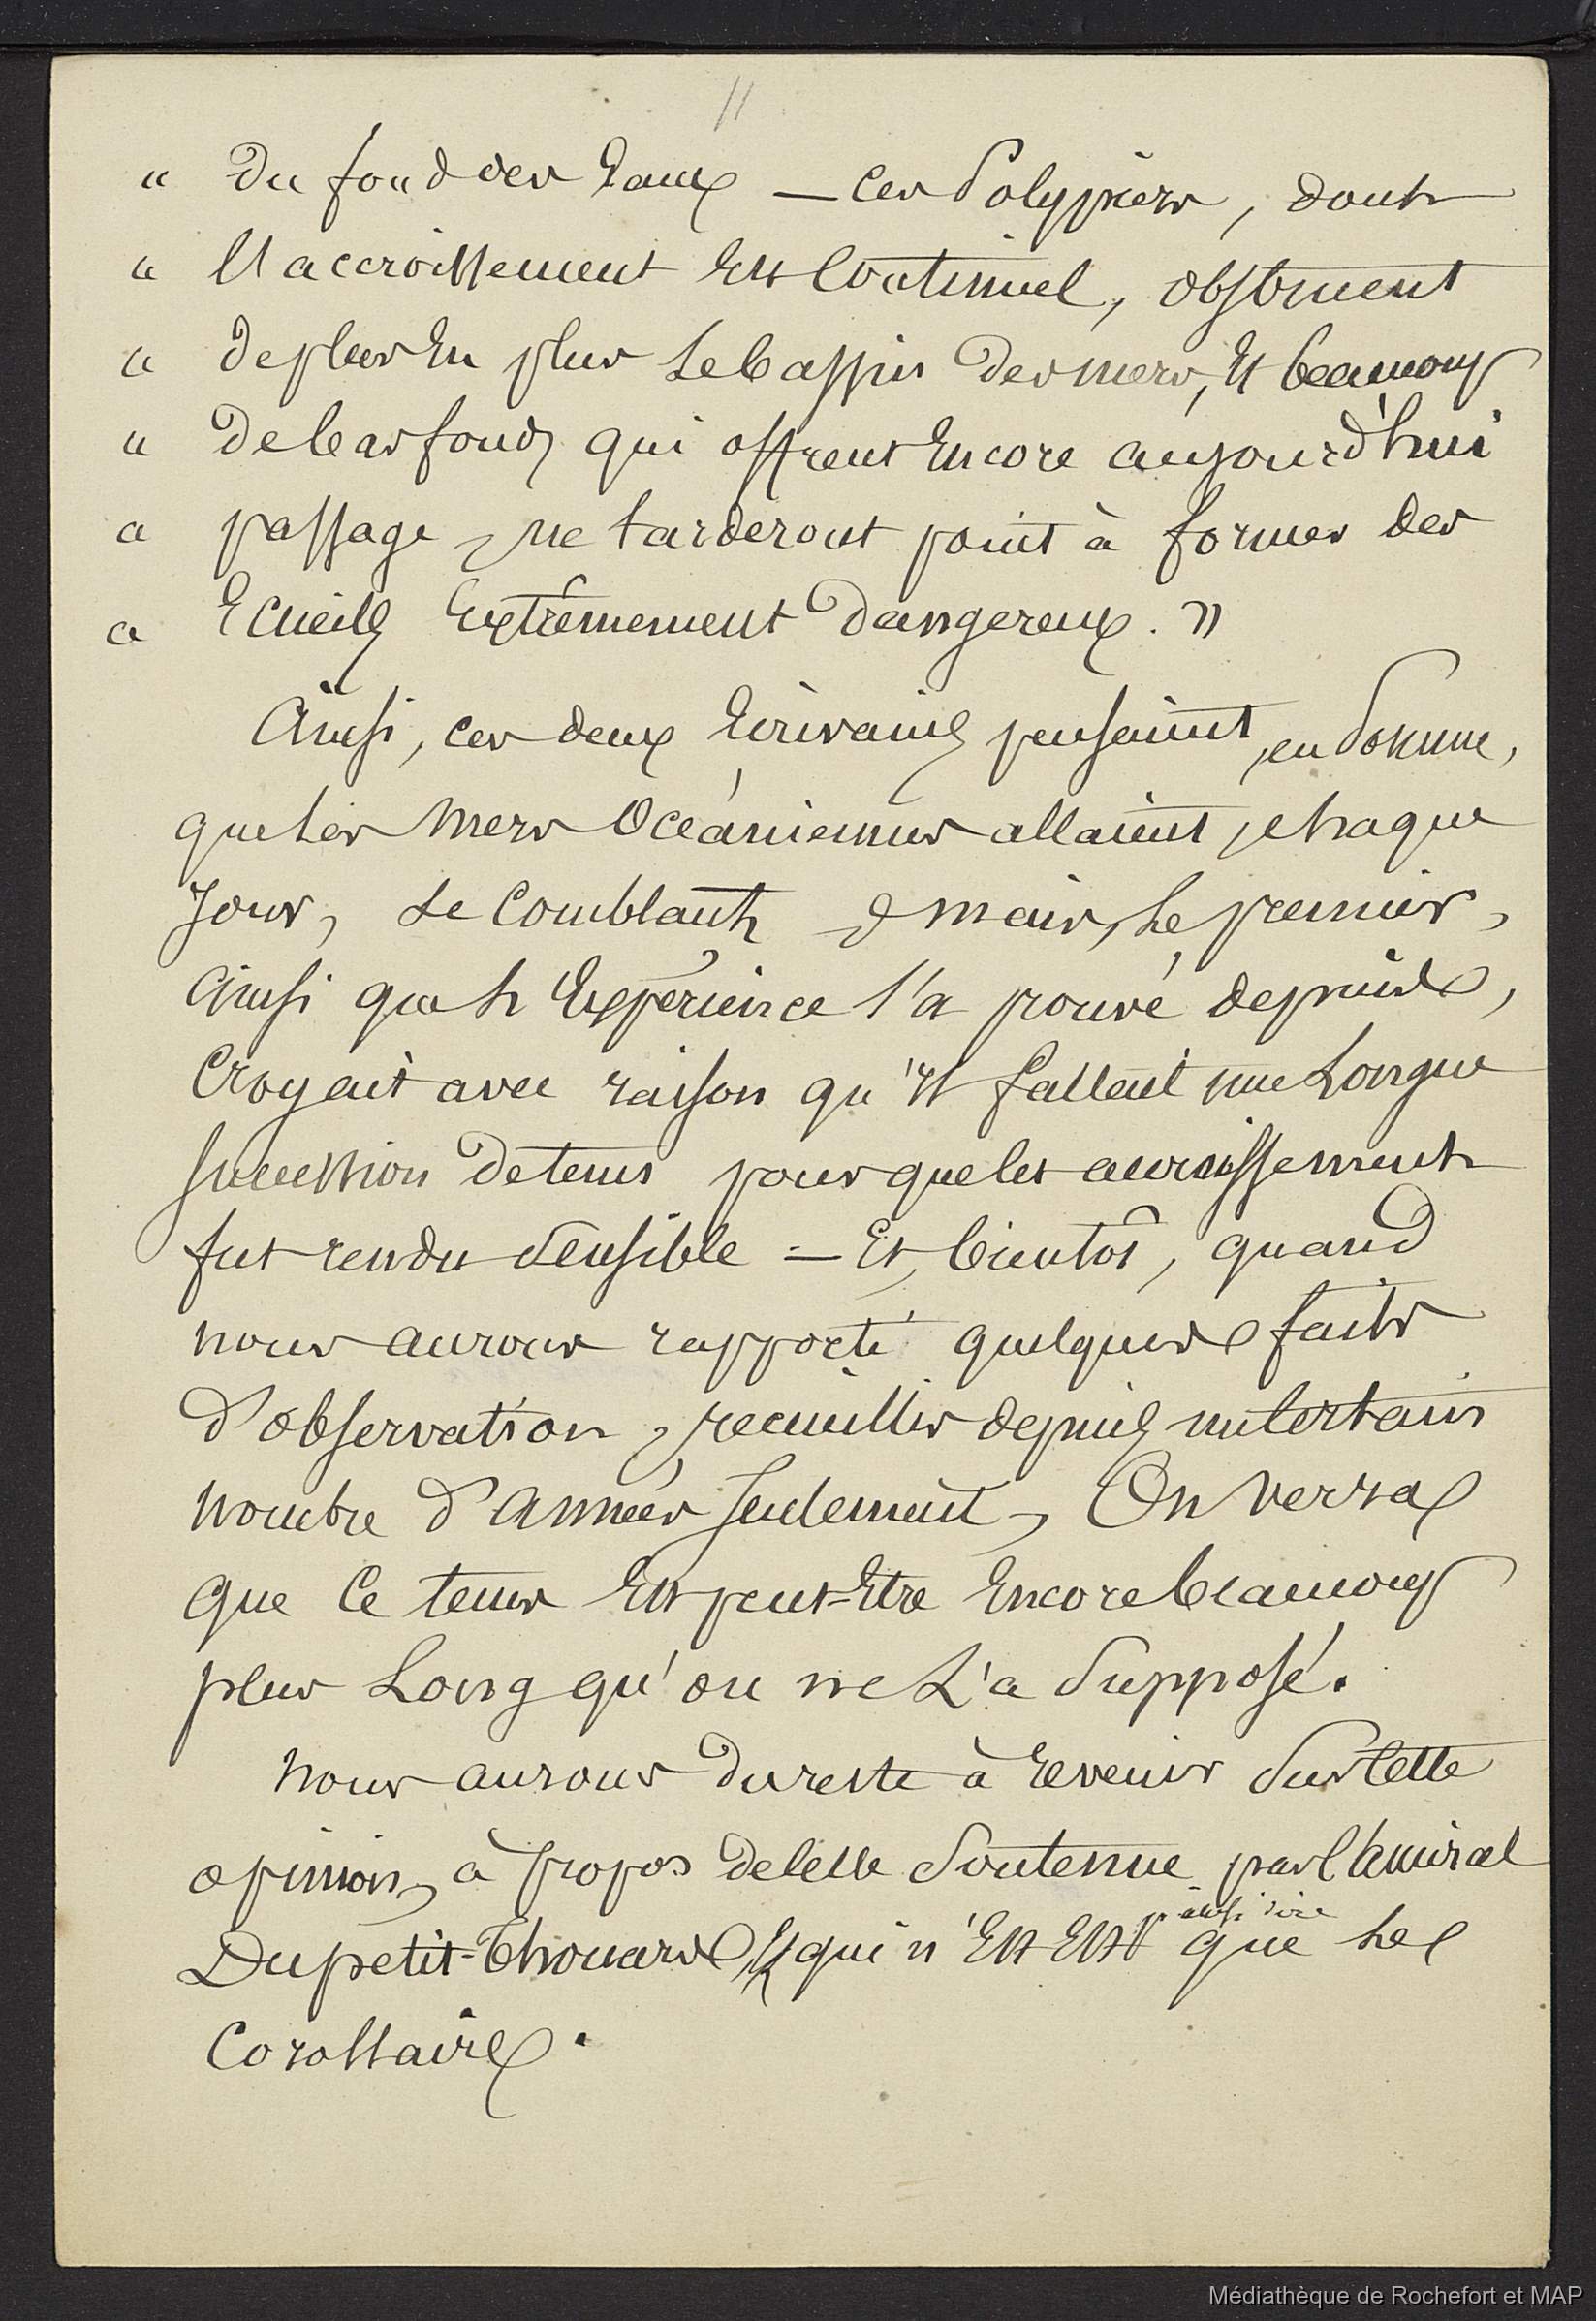 11
" Du fond des Eaux — Ces Polypiers, dont
" l'accroissement Est Continuel, obstruent
" de plus En plus Le bassin des mers, Et beaucoup
" De bas fonds qui offrent Encore aujourd'hui
" passage, ne tarderont point à former des
" Ecueils Extrêmement Dangereux. "
Ainsi, ces deux Ecrivains pensaient, en Somme,
que Les Mers Océaniennes allaient, chaque
Jour, Se Comblant, mais, Le premier,
Ainsi que L'Expérience l'a prouvé depuis,
Croyait avec raison qu'il fallait une Longue
succession de tems pour que cet accroissement
fut rendu Sensible — Et, bientôt, quand
nous aurons rapporté quelques faits
d'observation, recueillis depuis un Certain
nombre d'années seulement, On verra
que Ce tems Est peut-Etre Encore beaucoup
plus Long qu'on ne L'a Supposé.
Nous aurons du reste à revenir Sur Cette
opinion, à propos de celle Soutenue par l'Amiral
Dupetit-Thouars, Et qui n'En Est pr ainsi dire que Le
Corollaire.
Médiathèque de Rochefort et MAP